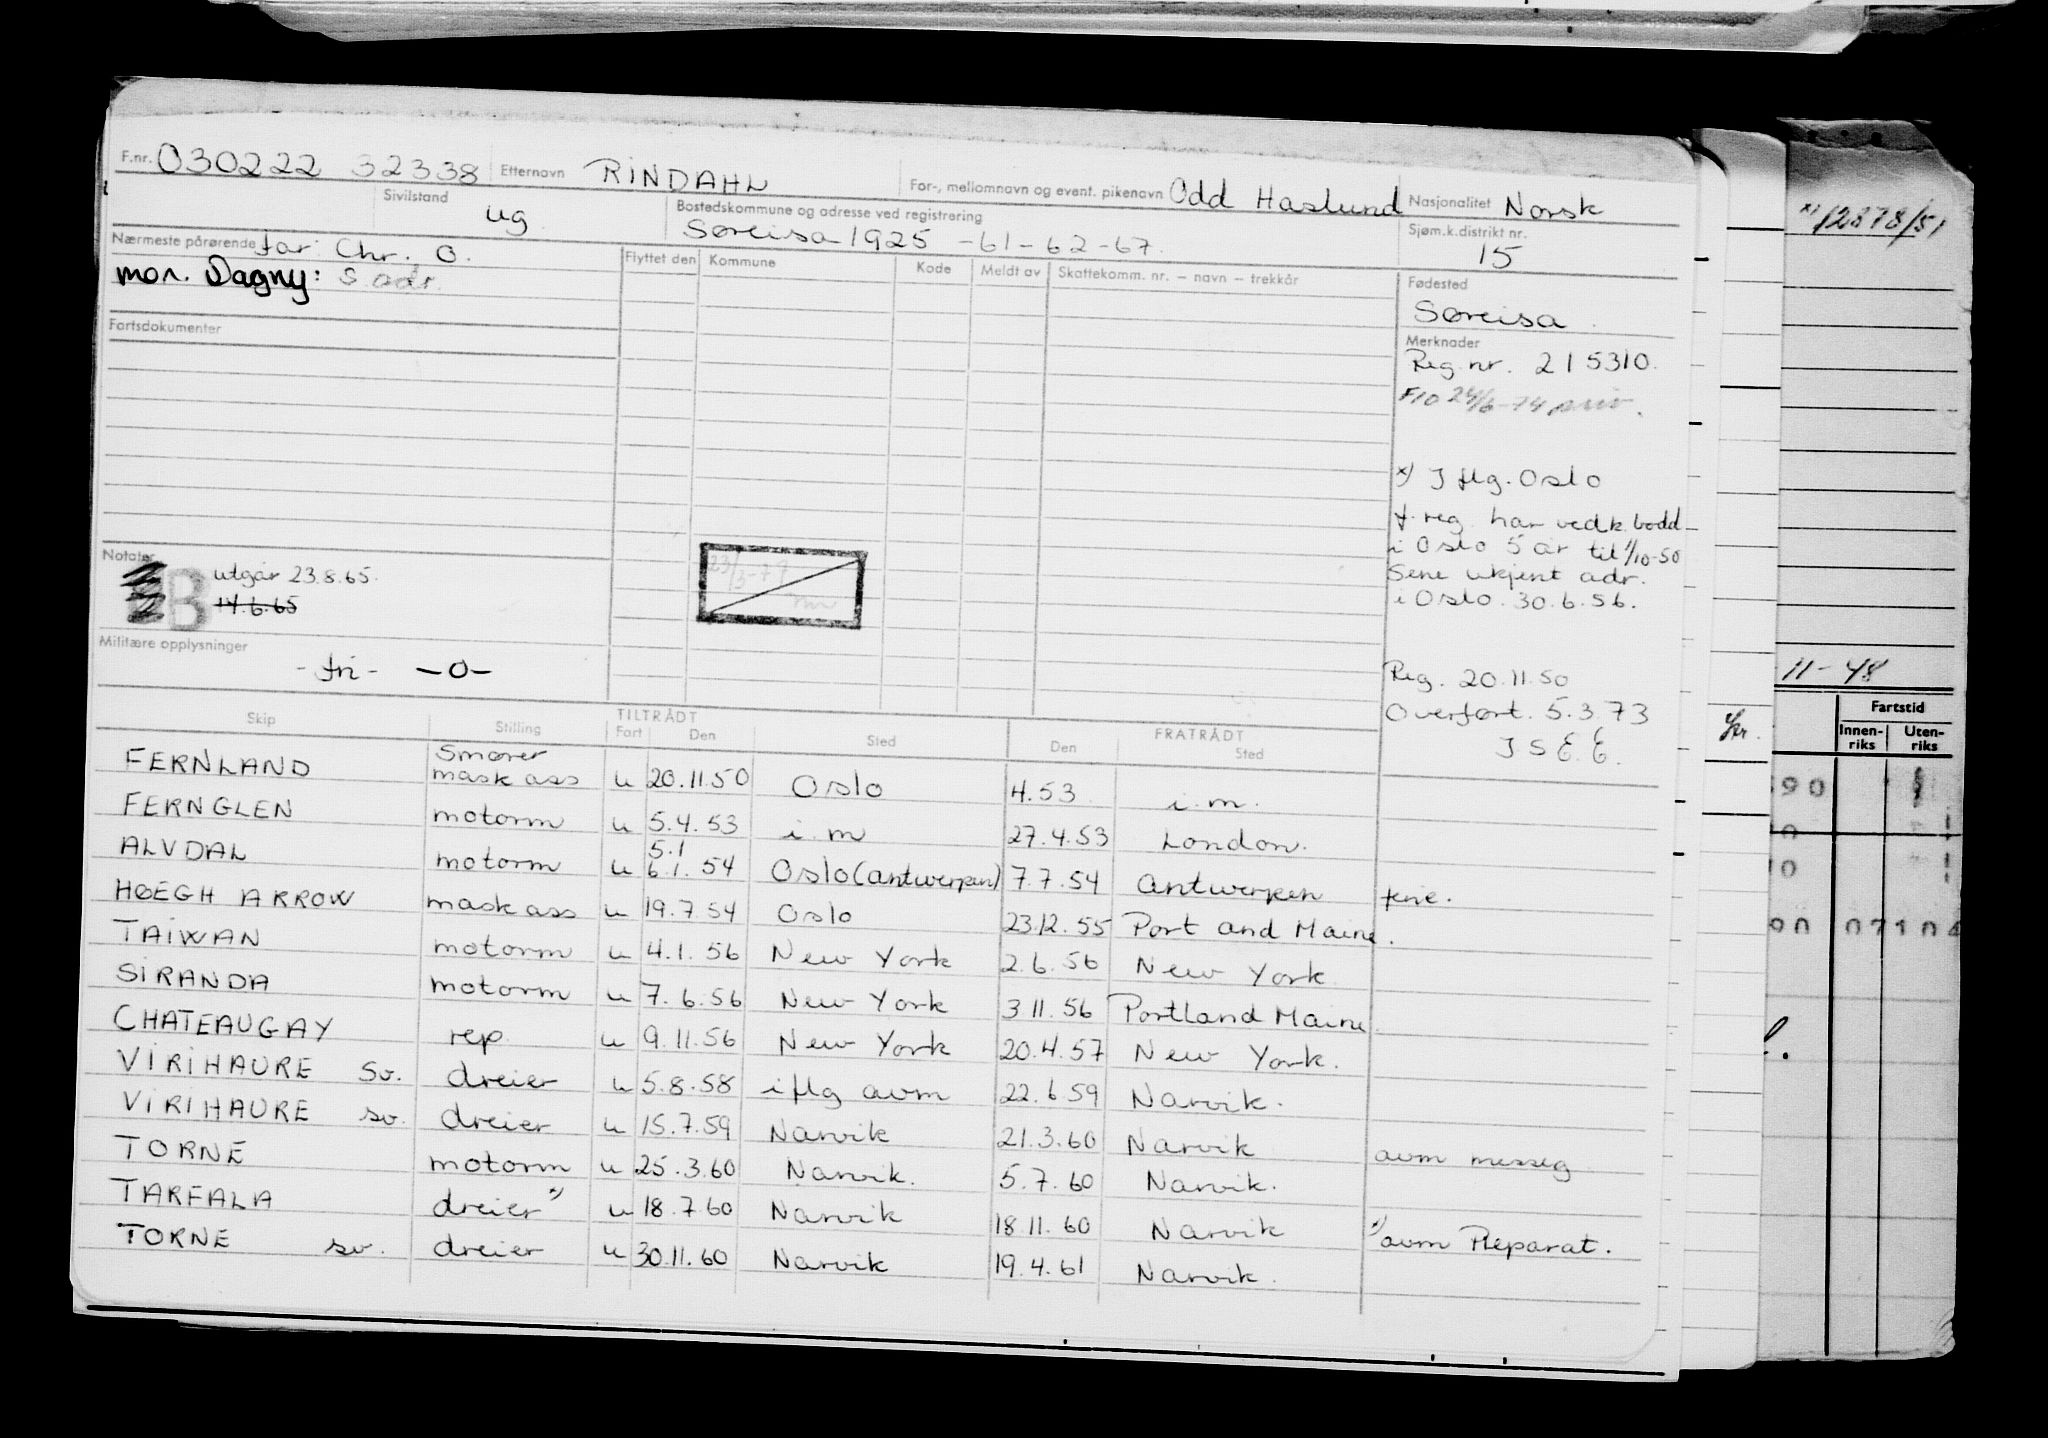 F.nr. 030222 32338 Etternavn RINDAHL For-, mellomnavn og event. pikenavn Odd Haslund Nasjonalitet Norsk
Sivilstand ug Bostedskommune og adresse ved registrering Sjøm.k.distrikt nr.
Sørreisa 1925 -61-62-67. 15
Nærmeste pårørende far: Chr. O. Flyttet den Kommune Kode Meldt av Skattekomm. nr. – navn – trekkår Fødested
mor. Dagny: s. adr. Søreisa
Fartsdokumenter
Merknader
Reg. nr. 215310.
F10 24/6-74
x) I flg. Oslo
f. reg. har vedk. bodd
i Oslo 5 år til 1/10-50
Sene ukjent adr.
i Oslo. 30.6.56.
Notater
B utgår 23.8.65.
14.6.65
23/3-79
Militære opplysninger
- fri - -0-
Reg. 20.11.50
Overført. 5.3.73
I S E E.
Skip Stilling TILTRÅDT Fart Den Sted FRATRÅDT Den Sted
FERNLAND Smører mask ass u 20.11.50 Oslo 4.53 i.m.
FERNGLEN motorm u 5.4.53 i.m 27.4.53 London.
ALVDAL motorm u 5.1 6.1.54 Oslo (antwerpen) 7.7.54 Antwerpen ferie.
HØEGH ARROW mask ass u 19.7.54 Oslo 23.12.55 Port and Maine.
TAIWAN motorm u 4.1.56 New York 2.6.56 New York
SIRANDA motorm u 7.6.56 New York 3 11.56 Portland Maine
CHATEAUGAY rep. u 9.11.56 New York 20.4.57 New York.
VIRIHAURE Sv. dreier u 5.8.58 iflg avm 22.6.59 Narvik.
VIRIHAURE sv. dreier u 15.7.59 Narvik 21.3.60 Narvik avm messeg
TORNE motorm u 25.3.60 Narvik. 5.7.60 Narvik.
TARFALA dreier x) u 18.7.60 Narvik 18.11.60 Narvik x) avm Reparat.
TORNE sv. dreier u 30.11.60 Narvik 19.4.61 Narvik.
x) 12878/51
11-48
Fartstid
Innen-riks Uten-riks
90